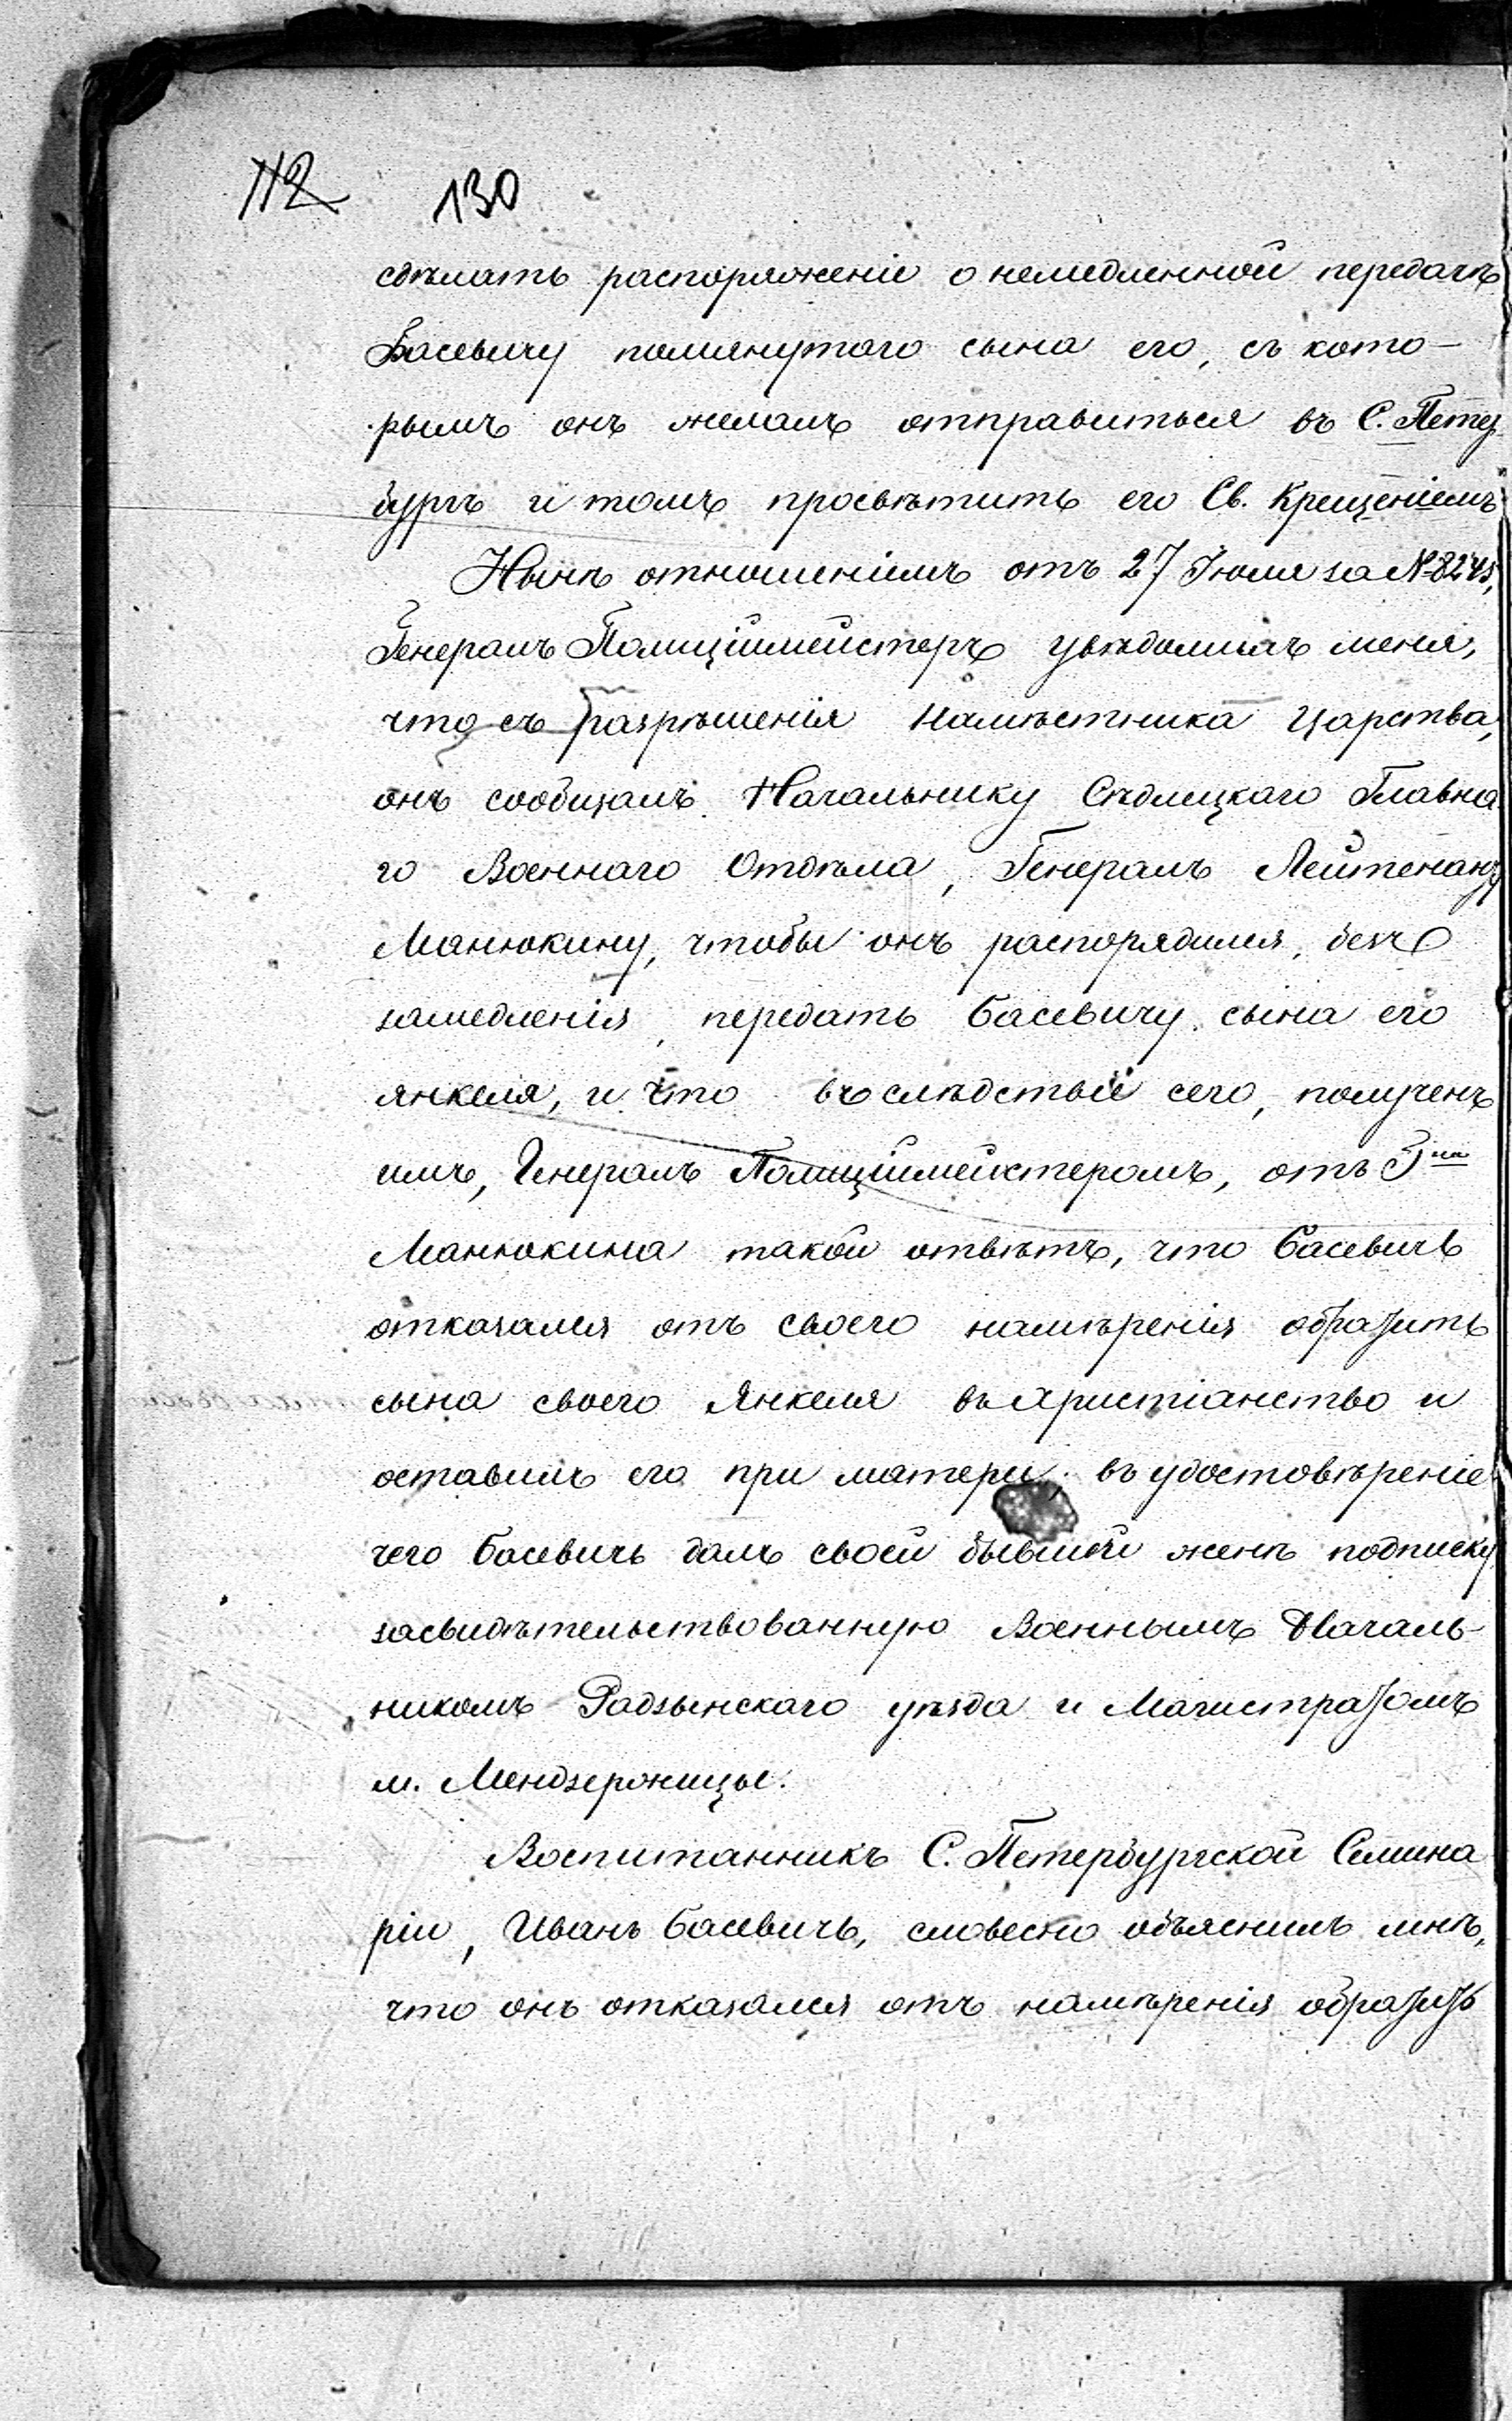 112 130
сдѣлать распоряженіе о немедленной передачѣ
Басевичу помянутого сына его, съ кото-
рымъ онъ желалъ отправиться въ С. Петер
бургъ и тамъ просвѣтить его Св. Крещеніемъ
Нынѣ отношеніемъ отъ 27 Іюля за № 8245,
Генералъ Полиціймейстеръ увѣдомилъ меня,
что съ разрѣшенія Намѣстника Царства,
онъ сообщалъ Начальнику Сѣдлецкаго Главна
го Военнаго Отдѣла, Генералъ Лейтенанту
Манюкину, чтобы онъ распорядился, безъ
замедленія, передать Басевичу сына его
Янкеля, и что въ слѣдствіе сего, полученъ
имъ, Генералъ Полиціймейстеромъ, отъ Г-на
Манюкина такой отвѣтъ, что Басевичъ
отказался отъ своего намѣренія обратить
сына своего Янкеля въ христіанство и
оставилъ его при матери, въ удостовѣреніе
чего Басевичъ далъ своей бывшей женѣ подписку
засвидѣтельствованную Военнымъ Началь-
никомъ Радзынскаго уѣзда и Магистратомъ
м. Мендзержицы.
Воспитанникъ С. Петербургской Семина
ріи, Иванъ Басевичъ, словесно объяснилъ мнѣ,
что онъ отказался отъ намѣренія обратить